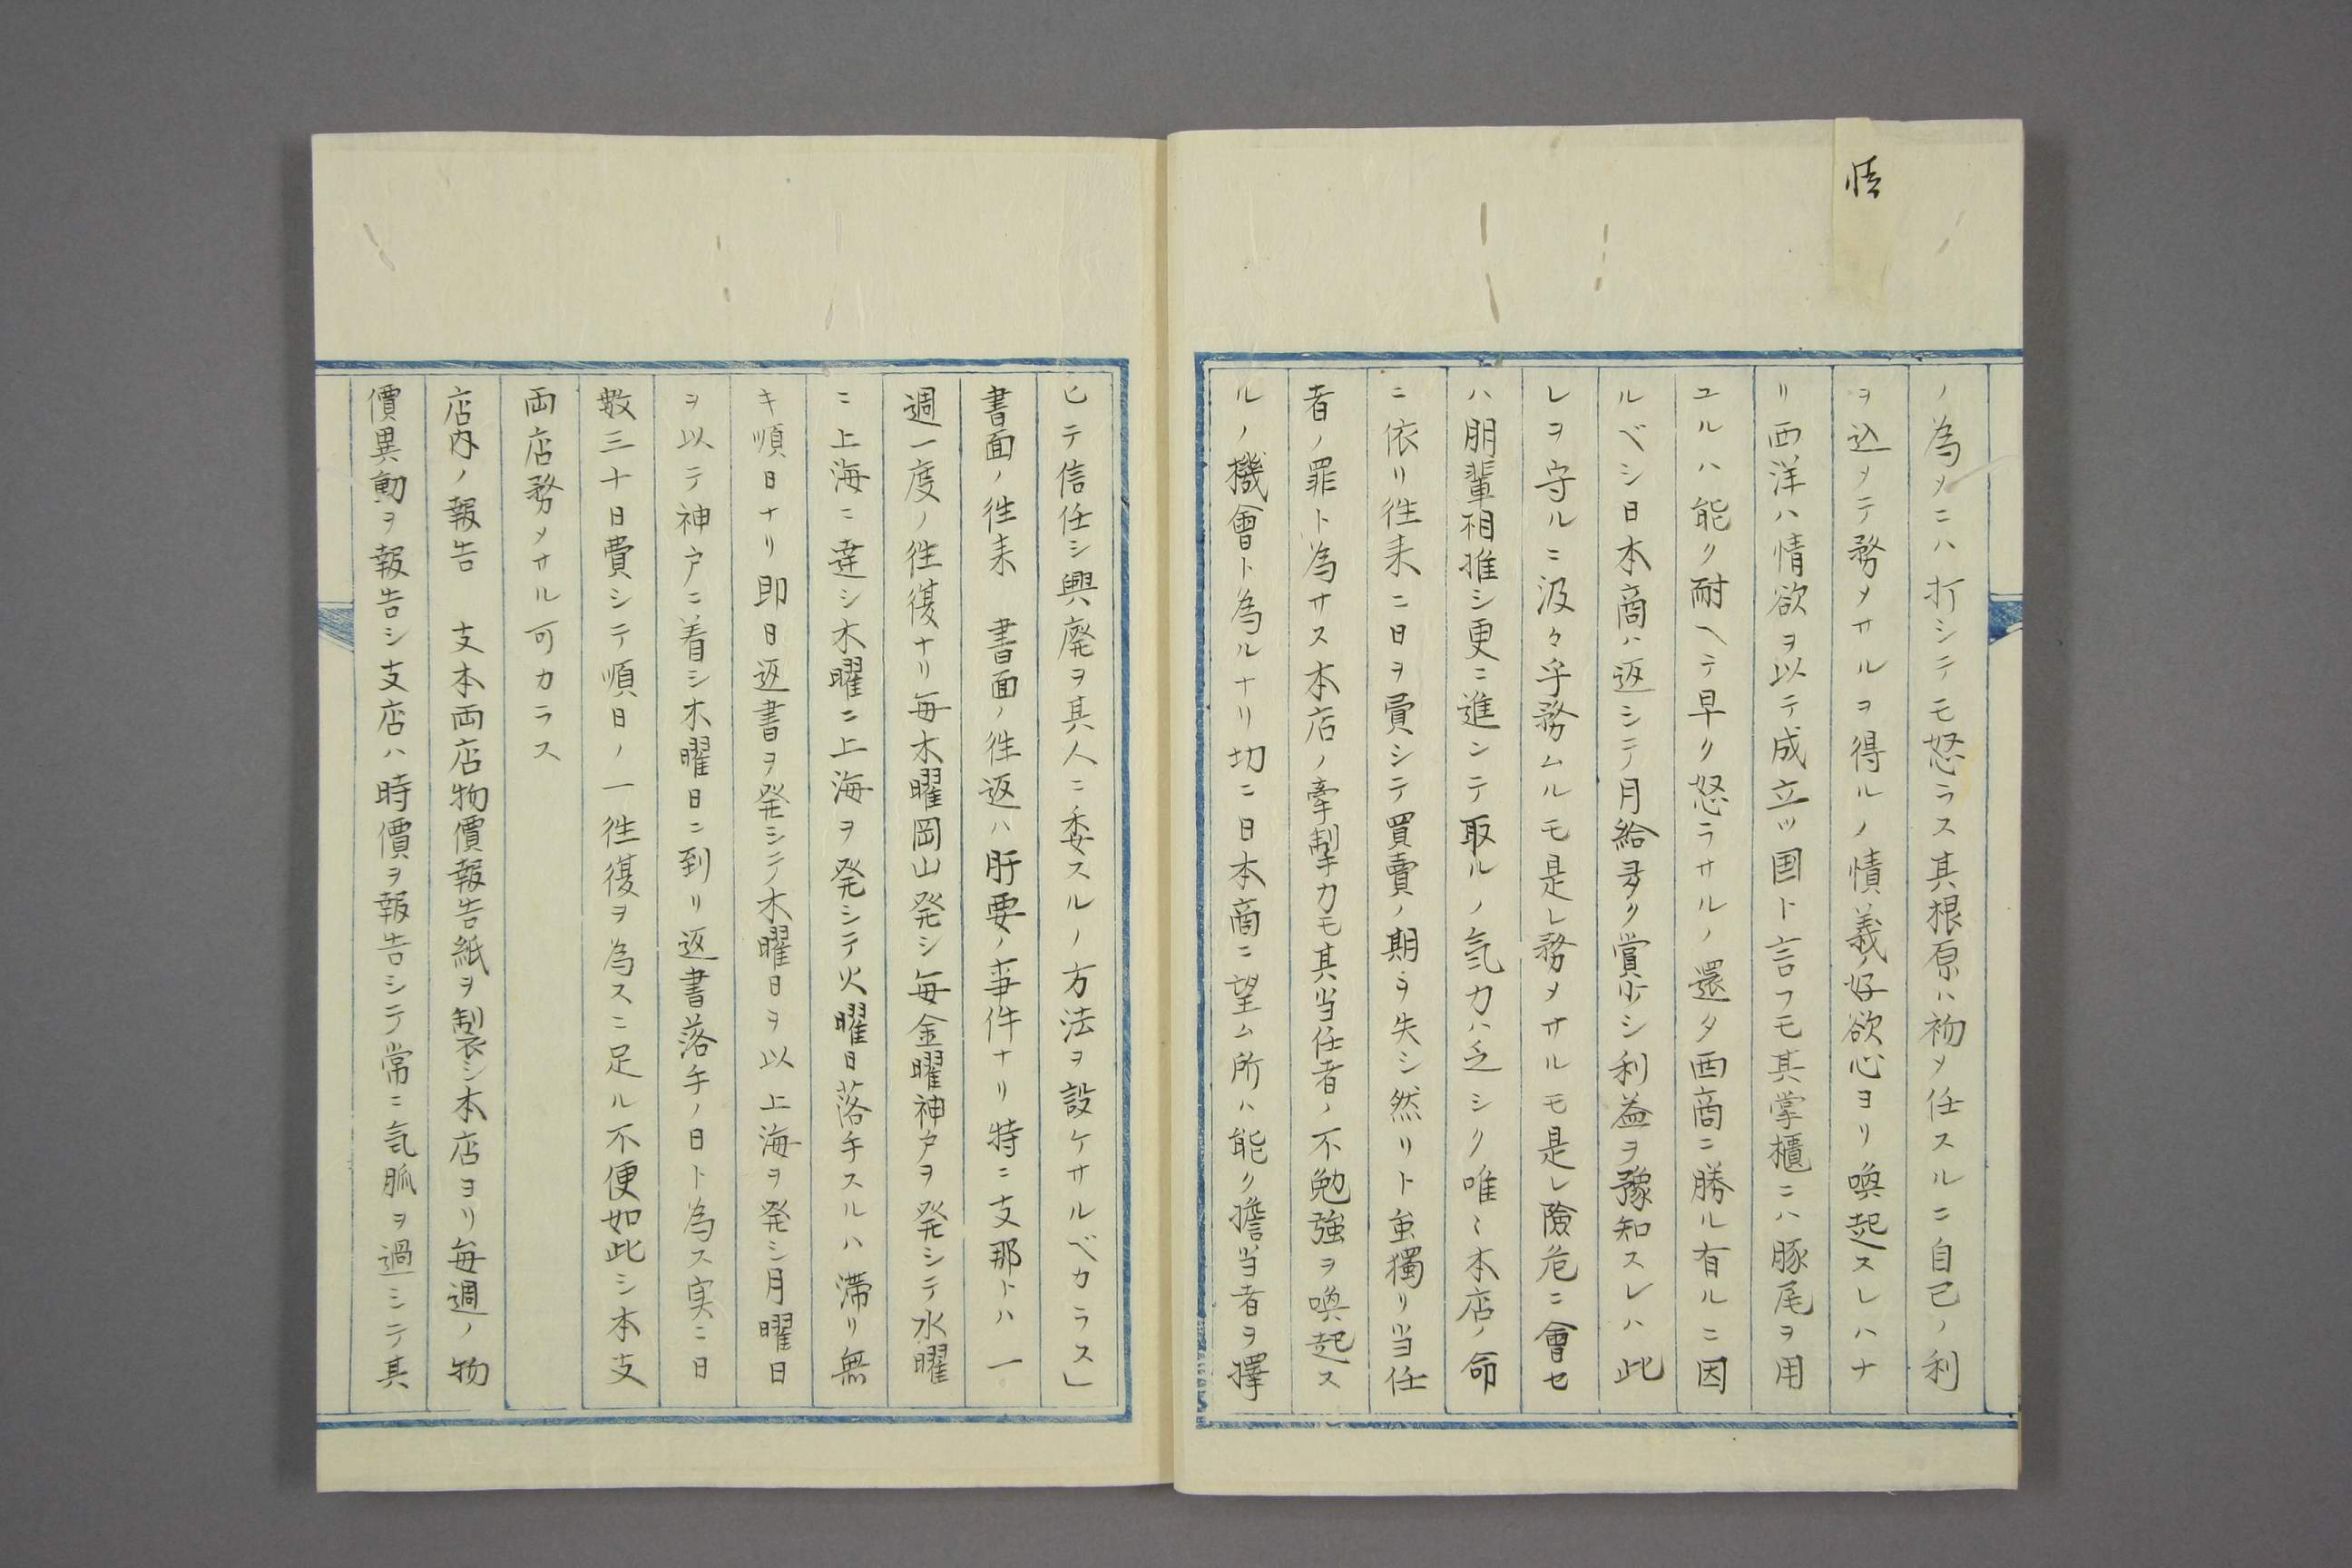 情
ノ為メニハ打シテモ怒ラス其根原ハ初メ任スルニ自己ノ利
ヲ込メテ務メサルヲ得ルノ情義好欲心ヨリ喚起スレハナ
リ西洋ハ情欲ヲ以テ成立ツ国ト言フモ其掌櫃ニハ豚尾ヲ用
ユルハ能ク耐ヘテ早ク怒ラサルノ還タ西商ニ勝ル有ルニ因
ルベシ日本商ハ返シテ月給多ク賞少シ利益ヲ豫知スレハ此
レヲ守ルニ汲々乎務ムルモ是レ務メサルモ是レ險危ニ會セ
ハ朋輩相推シ更ニ進ンテ取ルノ気力ハ乏シク唯ミ本店ノ命
ニ依リ徃来ニ日ヲ費シテ買賣ノ期ヲ失シ然リト虽獨リ当任
者ノ罪ト為サス本店ノ牽制力モ其当任者ノ不勉強ヲ喚起ス
ルノ機會ト為ルナリ切ニ日本商ニ望ム所ハ能ク擔当者ヲ擇
ヒテ信任シ興廃ヲ其人ニ委スルノ方法ヲ設ケサルベカラス」
書面ノ徃来　書面ノ徃返ハ肝要ノ事件ナリ特ニ支那トハ一
週一度ノ徃復ナリ毎木曜岡山発シ毎金曜神戸ヲ発シテ水曜
ニ上海ニ達シ木曜ニ上海ヲ発シテ火曜日落手スルハ滞リ無
キ順日ナリ即日返書ヲ発シテ木曜日ヲ以上海ヲ発シ月曜日
ヲ以テ神戸ニ着シ木曜日ニ到リ返書落手ノ日ト為ス実ニ日
数三十日費シテ順日ノ一徃復ヲ為スニ足ル不便如此シ本支
両店務メサル可カラス
店内ノ報告　支本両店物價報告紙ヲ製シ本店ヨリ毎週ノ物
價異動ヲ報告シ支店ハ時價ヲ報告シテ常ニ気脈ヲ過シテ其